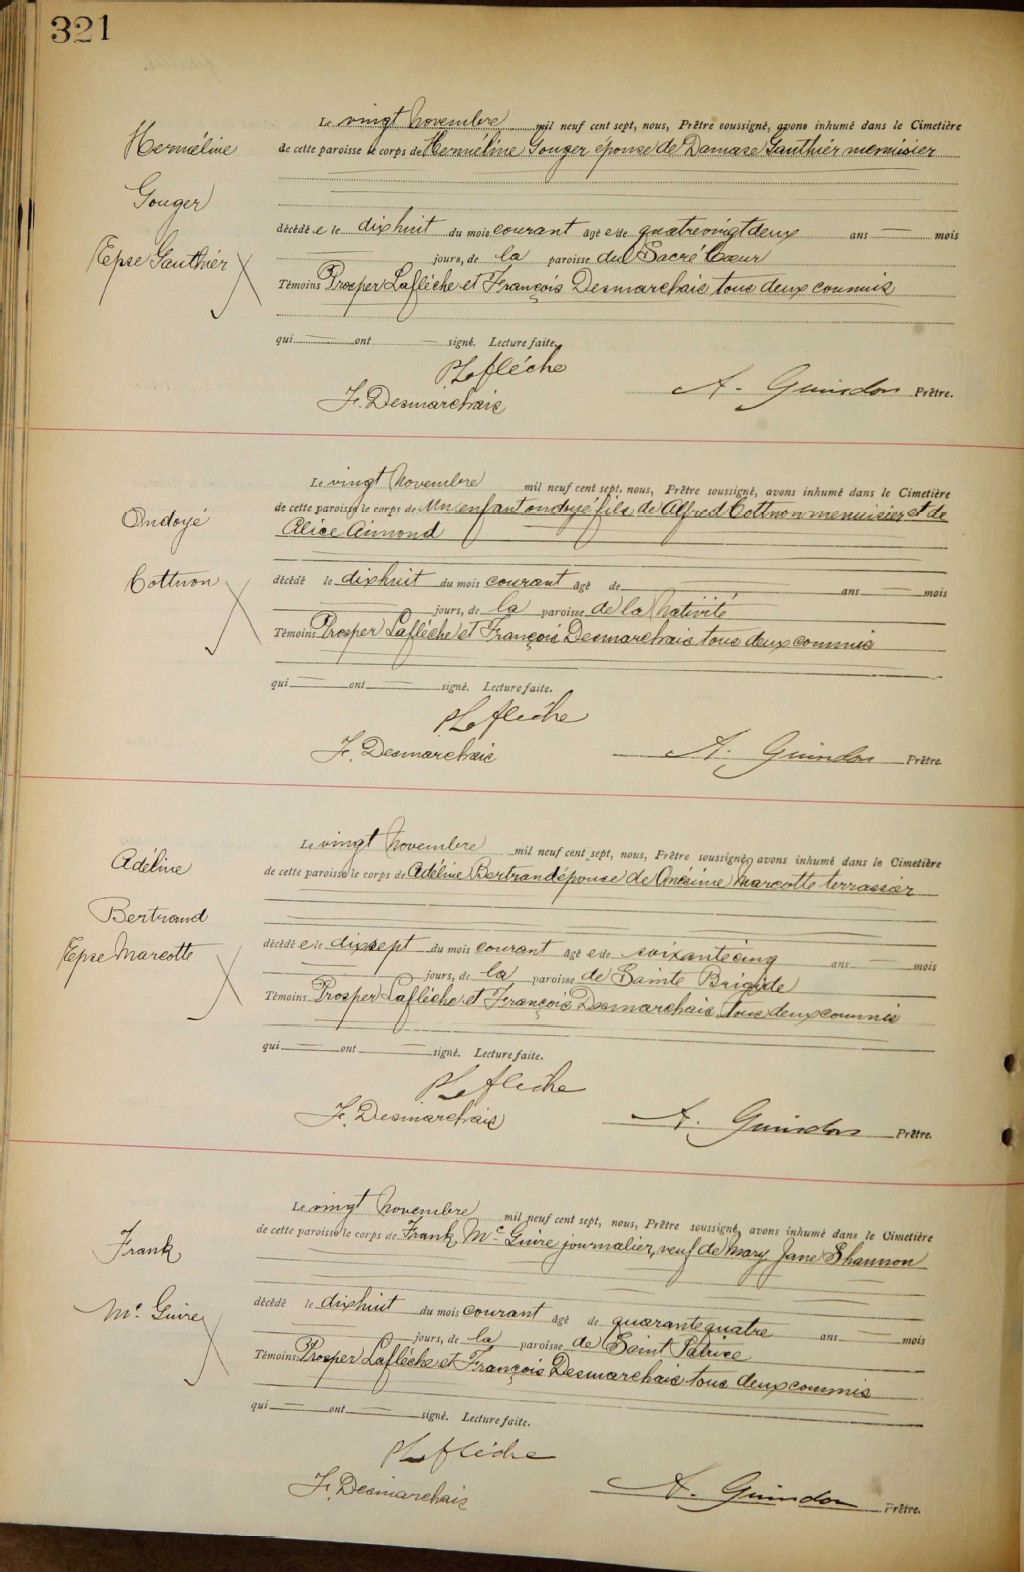 321
Hermeline
Gouger
Epse Gauthier
Le vingt Novembre mil neuf cent sept, nous, Prêtre soussigné, avons inhumé dans le Cimetière
de cette paroisse le corps de Herméline Gouger épouse de Damase Gauthier menuisier
décédé e le dixhuit du mois courant âgé e de quatrevingtdeux ans — mois
jours, de la paroisse du Sacré Cœur
Témoins Prosper Laflèche et François Desmarchais tous deux commis
qui — ont — signé. Lecture faite.
P Laflèche
F. Desmarchais
A. Guindon Prêtre.
Ondoyé
Cottnon
Le vingt Novembre mil neuf cent sept, nous, Prêtre soussigné, avons inhumé dans le Cimetière
de cette paroisse le corps de Un enfant ondoyé fils de Alfred Cottnon menuisier et de
Alice Aimond
décédé le dixhuit du mois courant âgé de — ans — mois
— jours, de la paroisse de la Nativité
Témoins Prosper Laflèche et François Desmarchais tous deux commis
qui — ont — signé. Lecture faite.
P Laflèche
F. Desmarchais
A. Guindon Prêtre.
Adéline
Bertrand
Epse Marcotte
Le vingt Novembre mil neuf cent sept, nous, Prêtre soussigné, avons inhumé dans le Cimetière
de cette paroisse le corps de Adéline Bertrand épouse de Onésime Marcotte terrassier
décédé e le dixsept du mois courant âgé e de soixantecinq ans — mois
— jours, de la paroisse de Sainte Brigide
Témoins Prosper Laflèche et François Desmarchais tous deux commis
qui — ont — signé. Lecture faite.
P Laflèche
F. Desmarchais
A. Guindon Prêtre.
Frank
Mc Guire
Le vingt Novembre mil neuf cent sept, nous, Prêtre soussigné, avons inhumé dans le Cimetière
de cette paroisse le corps de Frank Mc Guire journalier, veuf de Mary Jane Shannon
décédé le dixhuit du mois courant âgé de quarantequatre ans — mois
— jours, de la paroisse de Saint Patrice
Témoins Prosper Laflèche et François Desmarchais tous deux commis
qui — ont — signé. Lecture faite.
P Laflèche
F. Desmarchais
A. Guindon Prêtre.